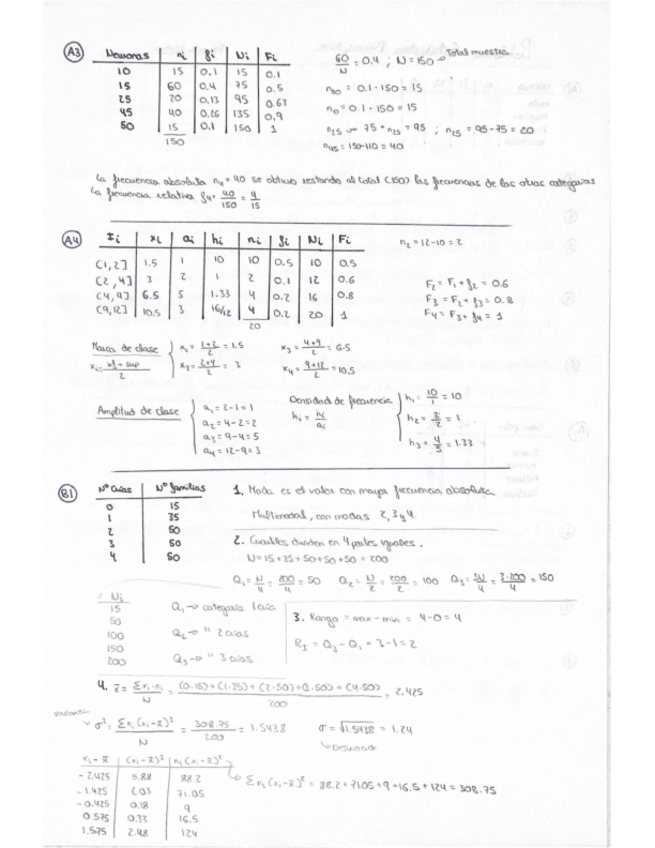 A3 Neuronas ni fi Ni Fi
10 15 0.1 15 0.1
15 60 0.4 75 0.5
25 20 0.13 95 0.63
45 40 0.26 135 0.9
50 15 0.1 150 1
150
60/N = 0.4 ; N = 150 → Total muestra
= 0.1 · 150 = 15
= 0.1 · 150 = 15
n25 → 75 + n25 = 95 ; n25 = 95 - 75 = 20
n45 = 150 - 110 = 40
La frecuencia absoluta n4 = 40 se obtuvo restando al total (150) las frecuencias de las otras categorías
La frecuencia relativa f4 = 40/150 = 4/15
A4 Ii xi ai hi ni fi Ni Fi
(1,2] 1.5 1 10 10 0.5 10 0.5
(2,4] 3 2 1 2 0.1 12 0.6
(4,9] 6.5 5 1.33 4 0.2 16 0.8
(9,12] 10.5 3 16/12 4 0.2 20 1
20
n2 = 12 - 10 = 2
F2 = F1 + f2 = 0.6
F3 = F2 + f3 = 0.8
F4 = F3 + f4 = 1
Marca de clase
xi = inf + sup / 2
x1 = 1+2/2 = 1.5 x3 = 4+9/2 = 6.5
x2 = 2+4/2 = 3 x4 = 9+12/2 = 10.5
Amplitud de clase
a1 = 2 - 1 = 1
a2 = 4 - 2 = 2
a3 = 9 - 4 = 5
a4 = 12 - 9 = 3
Densidad de frecuencia
hi = ni/ai
h1 = 10/1 = 10
h2 = 2/2 = 1
h3 = 4/3 = 1.33
B1 Nº crías Nº familias
0 15
1 35
2 50
3 50
4 50
1. Moda es el valor con mayor frecuencia absoluta
Multimodal, con modas 2, 3 y 4
2. Cuartiles dividen en 4 partes iguales.
N = 15 + 35 + 50 + 50 + 50 = 200
Q1 = N/4 = 200/4 = 50 Q2 = N/2 = 200/2 = 100 Q3 = 3N/4 = 3·200/4 = 150
Ni
15
50
100
150
200
Q1 → categoría 1 cría
Q2 → " 2 crías
Q3 → " 3 crías
3. Rango = max - min = 4 - 0 = 4
RI = Q3 - Q1 = 3 - 1 = 2
4. x̄ = Σxi·ni / N = (0·15)+(1·35)+(2·50)+(3·50)+(4·50) / 200 = 2.425
varianza
σ² = Σni(xi - x̄)² / N = 308.75/200 = 1.5438 σ = √1.5438 = 1.24
Desviación
xi - x̄ (xi - x̄)² ni(xi - x̄)²
-2.425 5.88 88.2
-1.425 2.03 71.05
-0.425 0.18 9
0.575 0.33 16.5
1.575 2.48 124
Σni(xi - x̄)² = 88.2 + 71.05 + 9 + 16.5 + 124 = 308.75